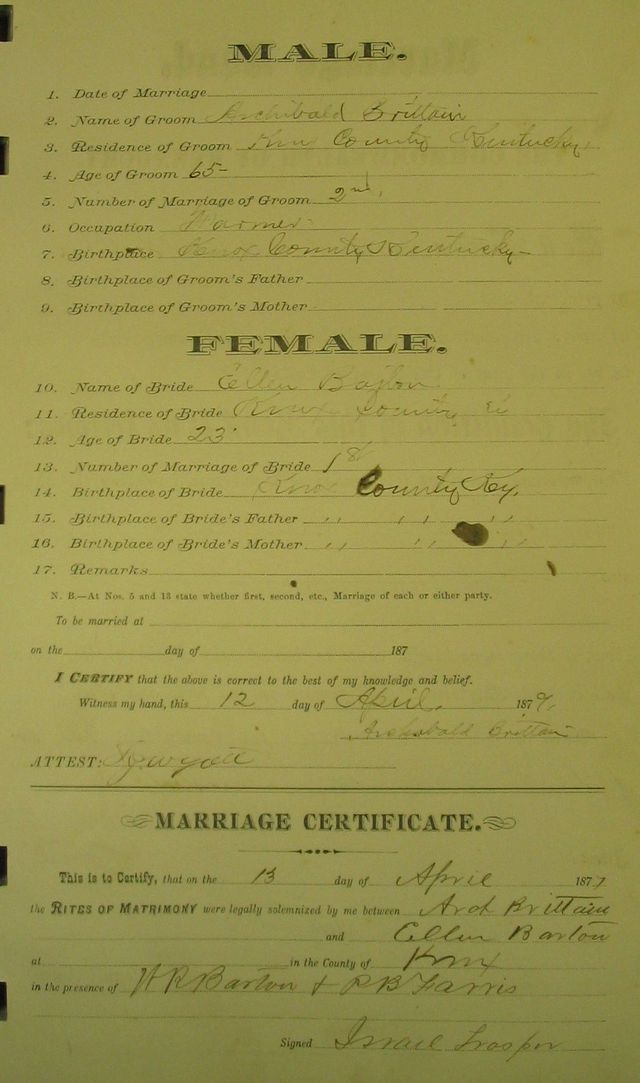 MALE.
1. Date of Marriage
2. Name of Groom Archibald Brittain
3. Residence of Groom Knox County Kentucky
4. Age of Groom 65
5. Number of Marriage of Groom 2nd
6. Occupation Farmer
7. Birthplace Knox County Kentucky
8. Birthplace of Groom's Father
9. Birthplace of Groom's Mother
FEMALE.
10. Name of Bride Ellen
11. Residence of Bride Knox County
12. Age of Bride 23
13. Number of Marriage of Bride 1st
14. Birthplace of Bride Knox County Ky.
15. Birthplace of Bride's Father " " "
16. Birthplace of Bride's Mother " " "
17. Remarks
N. B.—At Nos. 5 and 13 state whether first, second, etc., Marriage of each or either party.
To be married at
on the day of 187
I CERTIFY that the above is correct to the best of my knowledge and belief.
Witness my hand, this 12 day of April 187
Archibald Brittain
ATTEST:
MARRIAGE CERTIFICATE.
This is to Certify, that on the 13 day of April 187
the RITES OF MATRIMONY were legally solemnized by me between Arch Brittain
and Ellen Barton
at in the County of Knox
in the presence of Barton & Farris
Signed Israel